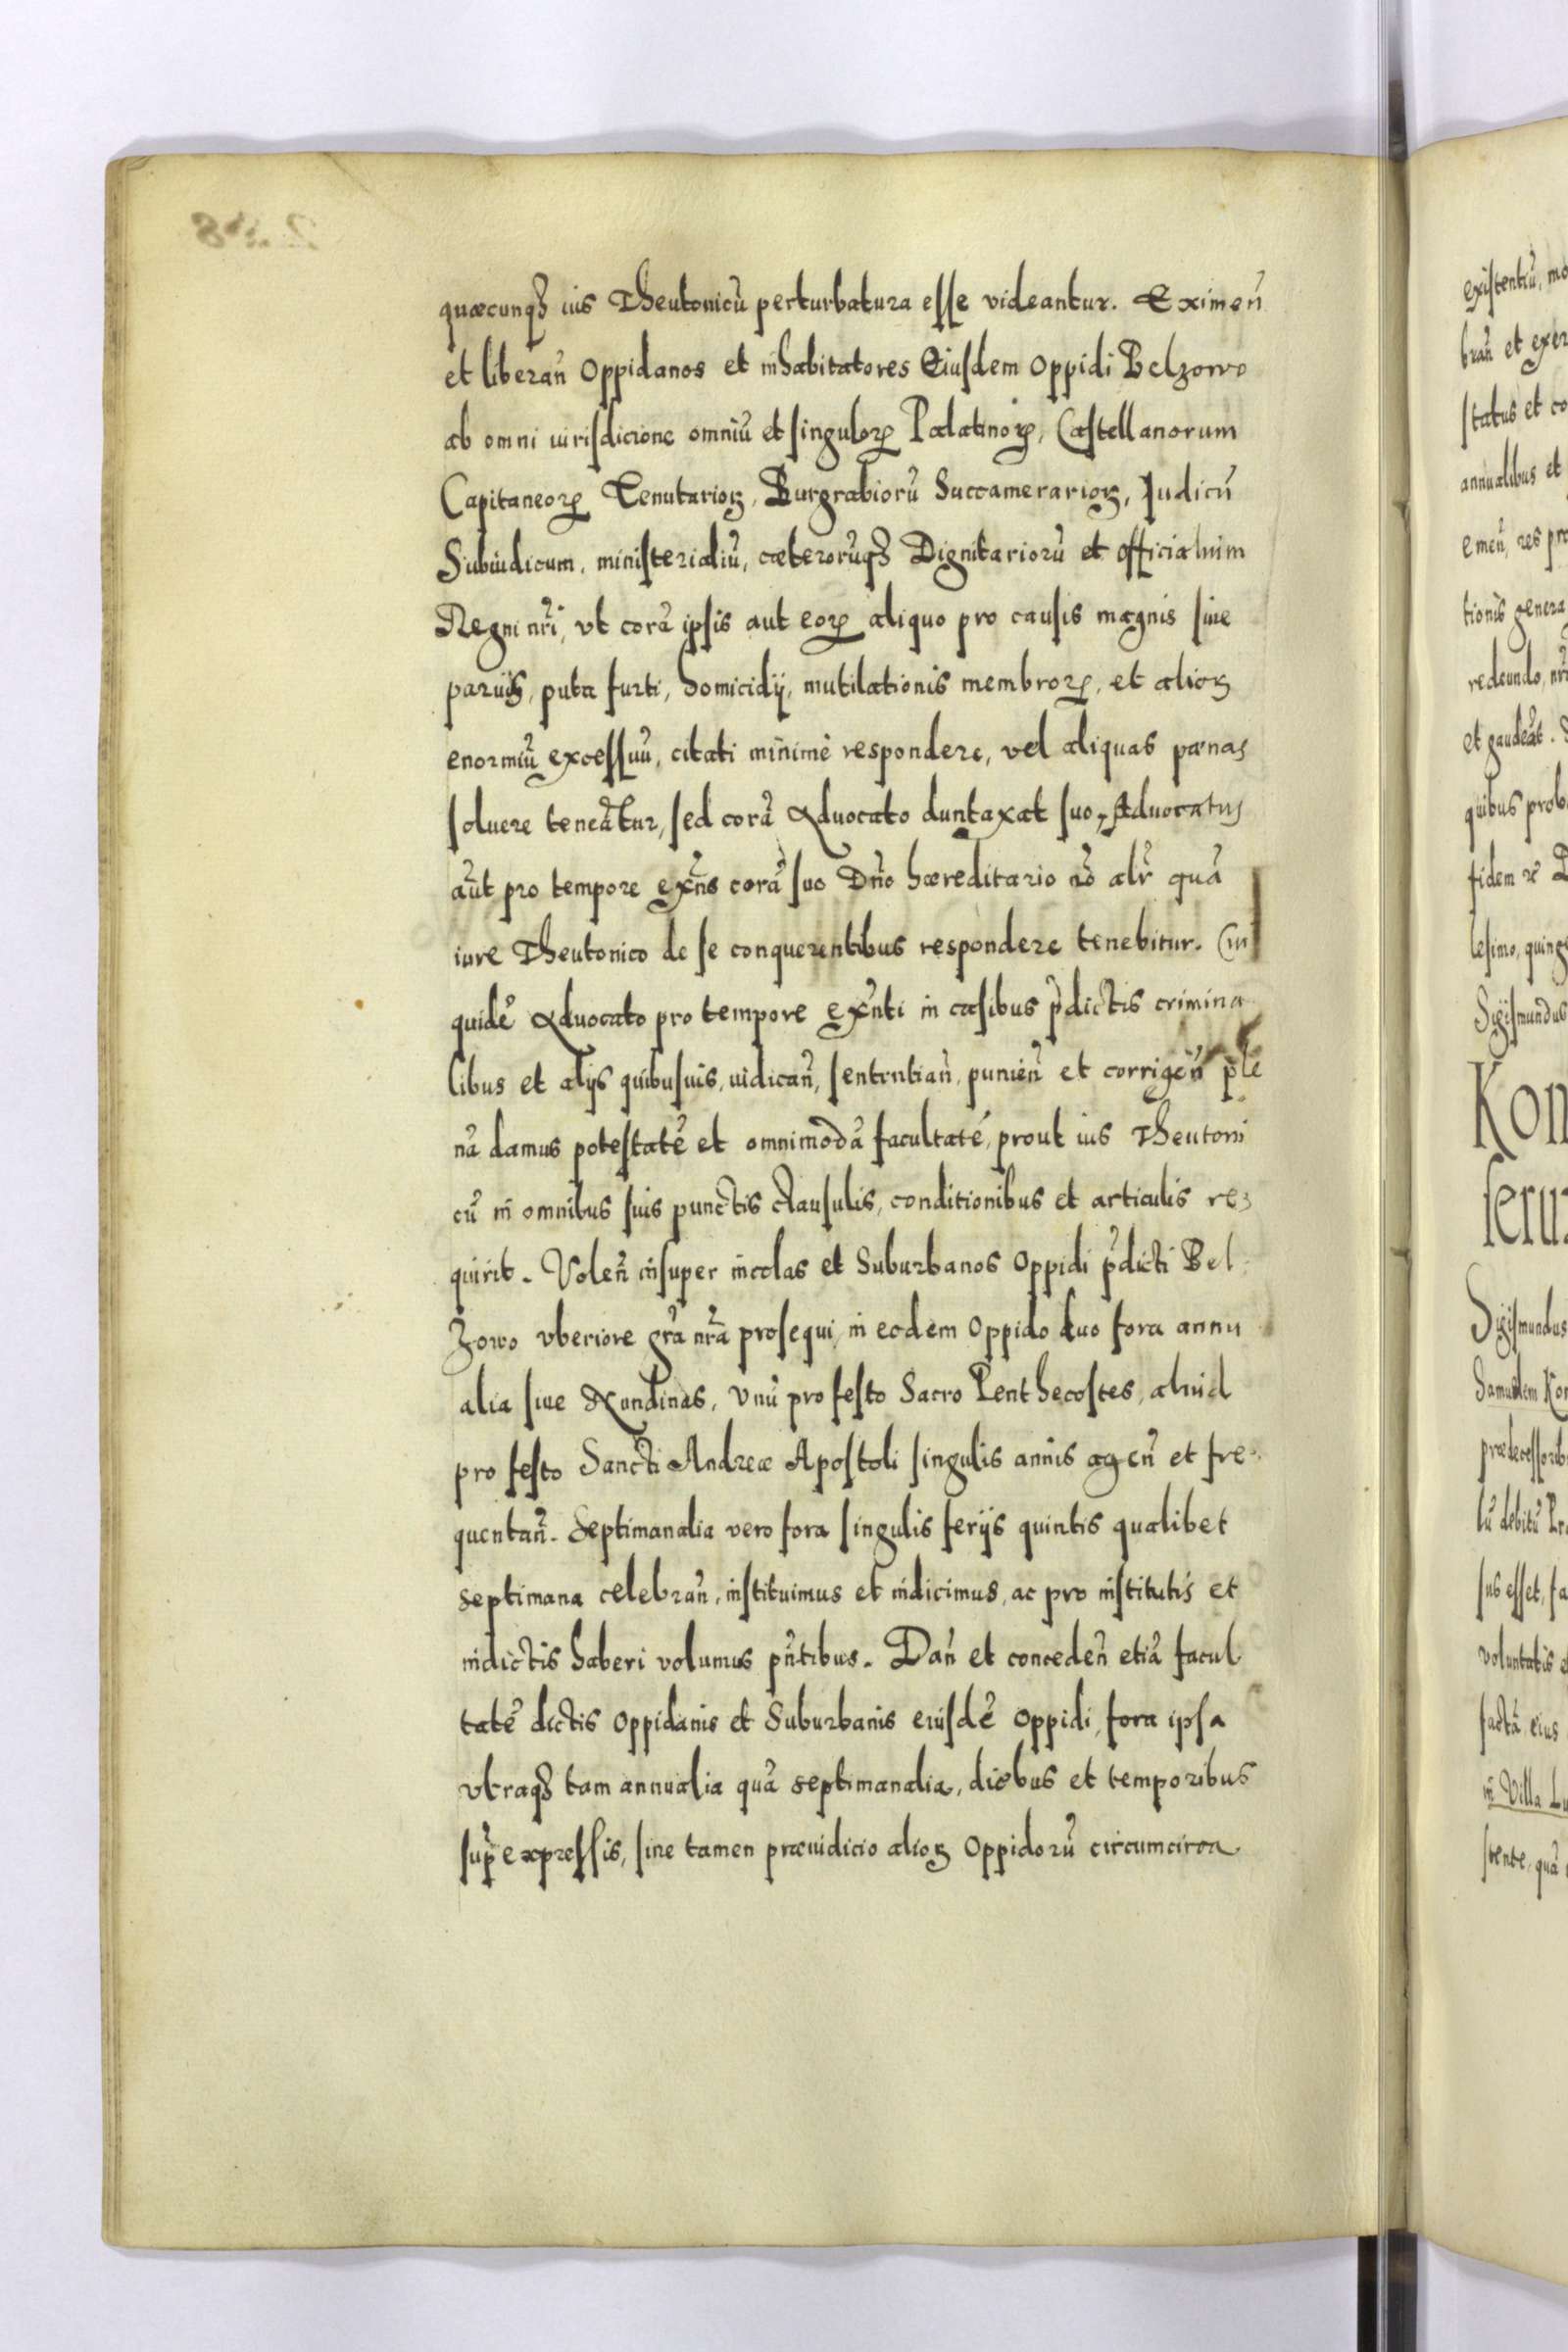 quæcunqȝ ius Theutonicũ perturbatura esse videantur. Eximeñ
et liberañ Oppidanos et inhabitatores Eiusdem Oppidi Belzowo
ab omni iurisdicione omniũ et singuloꝝ Palatinoꝝ, Castellanorum
Capitaneoꝝ Tenutarioꝝ, Burgrabiorũ Succamerarioꝝ, Judicũ
Subiudicum, ministerialiũ, cæterorũqȝ Dignitariorũ et officialium
Regni nr̃i, vt corã ipsis aut eoꝝ aliquo pro causis magnis siue
paruis, puta furti, homicidij, mutilationis membroꝝ, et alioꝝ
enormiũ excessuũ, citati minimè respondere, vel aliquas pœnas
soluere teneãtur, sed corã Aduocato duntaxat suo, Aduocatus
aũt pro tempore ex̃ns corã suo Dño hæreditario nõ alr̃ quã
iure Theutonico de se conquerentibus respondere tenebitur. Cui
quidẽ Aduocato pro tempore ex̃nti in casibus p̃dictis crimina
libus et alijs quibusuis, iudicañ, sententiañ, punieñ et corrigeñ ple
nã damus potestatẽ et omnimodã facultatẽ, prout ius Theutoni
cũ in omnibus suis punctis clausulis, conditionibus et articulis re
quirit. Voleñ insuper incolas et Suburbanos Oppidi p̃dicti Bel
zowo vberiore gr̃a nr̃a prosequi, in eodem Oppido duo fora annu
alia siue Nundinas, vnũ pro festo Sacro Penthecostes, aliud
pro festo Sancti Andreæ Apostoli singulis annis ageñ et fre
quentañ. Septimanalia vero fora singulis ferijs quintis qualibet
septimana celebrañ, instituimus et indicimus, ac pro institutis et
indictis haberi volumus pñtibus. Dañ et concedeñ etiã facul
tatẽ dictis Oppidanis et Suburbanis eiusdẽ Oppidi, fora ipsa
vtraqȝ tam annualia quã septimanalia, diebus et temporibus
sup̃ expressis, sine tamen præiudicio alioꝝ Oppidorũ circumcirca
existentiũ,
brañ et
status et
annualibus et
emeñ, res
tionis
redeundo,
et gaudeãt.
quibus
fidem
lesimo,
Sigismundus
Kon
feru
Sigismundus
Samuelem

lũ debitũ
sus esset,
voluntatis
factã eius
in Villa
stente, quã